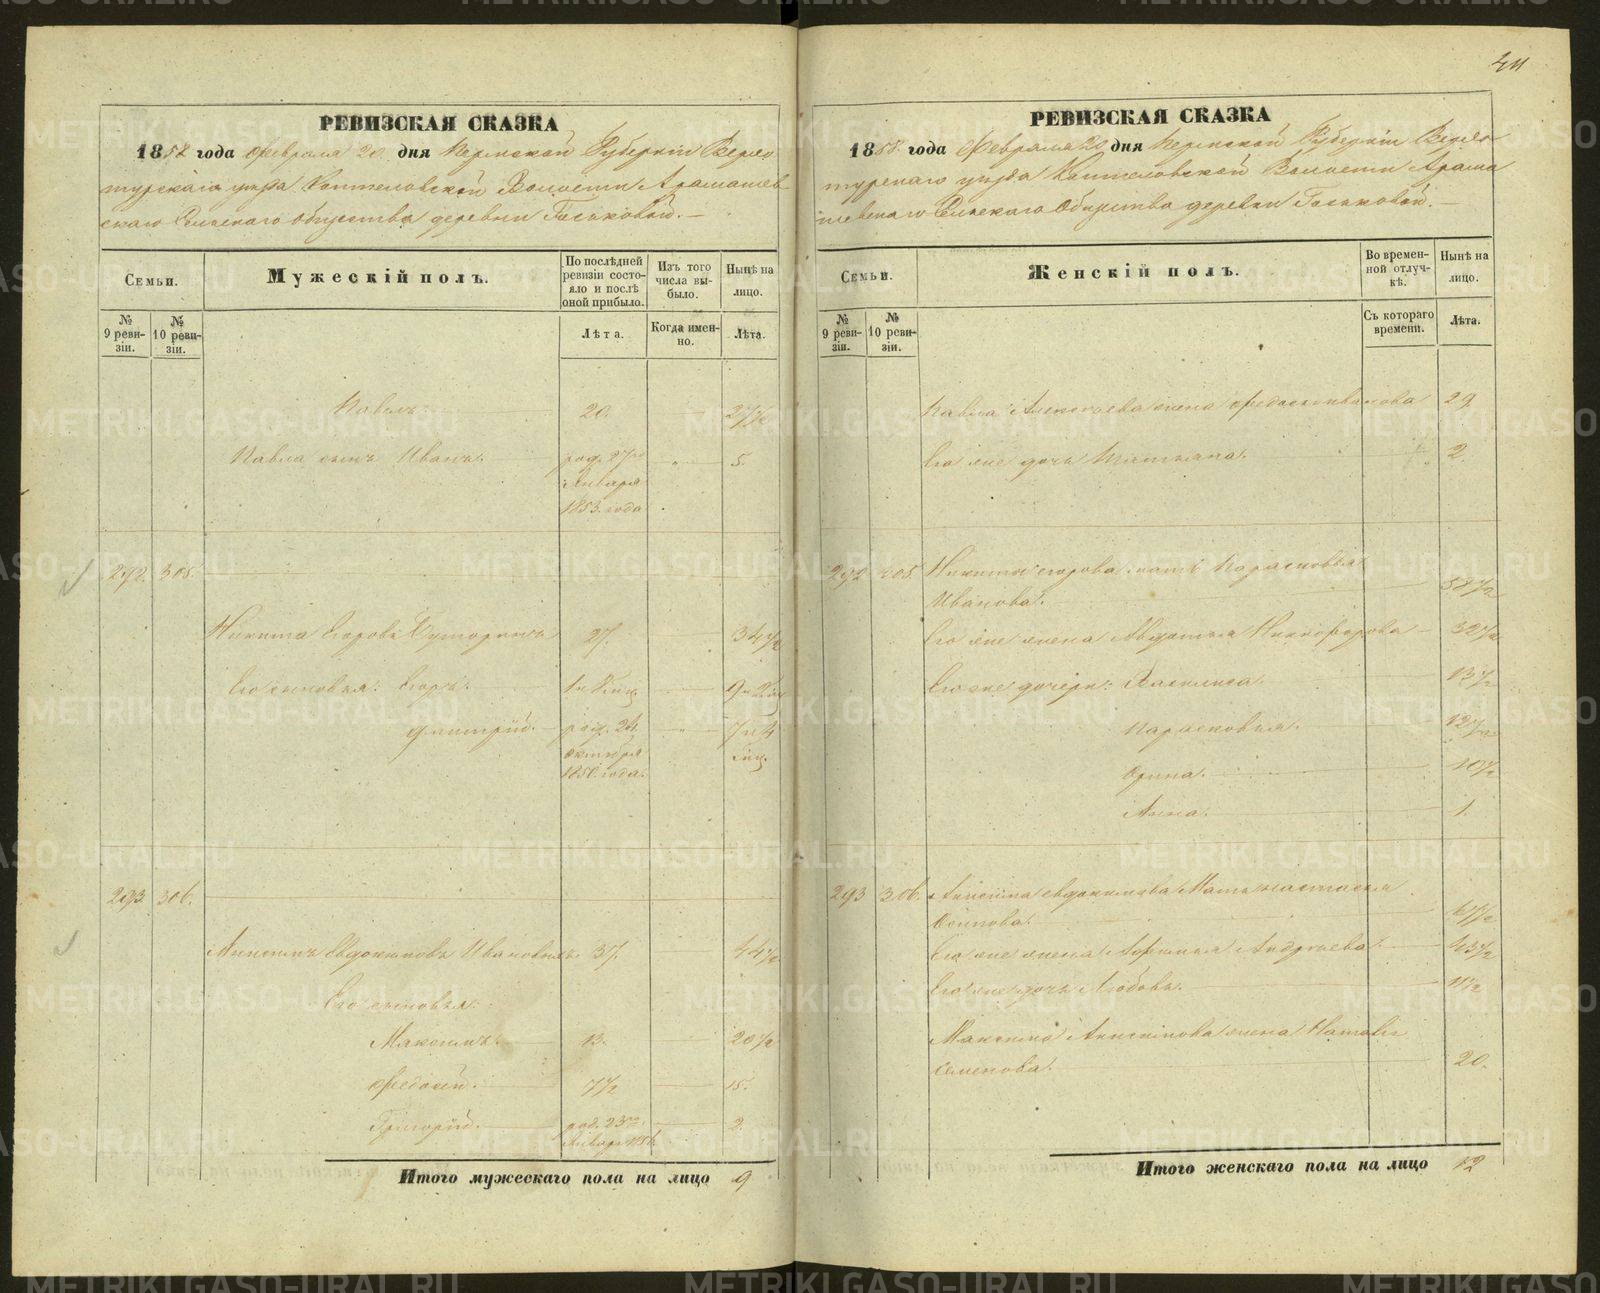 411
РЕВИЗСКАЯ СКАЗКА
1858 года Февраля 20 дня Пермской Губернiи Верхо
турскаго уѣзда Коптеловской Волости Арамашев
скаго Сельскаго Общества деревни Гоcьковой. —
Семьи.
Мужескiй полъ.
По послѣдней ревизiи состояло и послѣ оной прибыло.
Изъ того числа выбыло.
Нынѣ на лицо.
№ 9 ревизiи.
№ 10 ревизiи.
Лѣта.
Когда именно.
Лѣта.
Павелъ 20. 27½
Павла сынъ Иванъ. род. 27го Января 1853. года 5.
292. 305.
Никита Егоровъ 27. 34½
Его сыновья: Егоръ. 9
Дмитрiй. род. 24 октября 1850. года. 7 и 4 мѣц.
293 306.
Анисимъ Евдокимовъ Ивановыхъ. 37. 44½
Его сыновья:
Максимъ. 13. 20½
Федосѣй. 7½ 15.
Григорiй. род. 23го Января 2.
Итого мужескаго пола на лицо 9
РЕВИЗСКАЯ СКАЗКА
1858. года Февраля 20 дня Пермской Губернiи Верхо
турскаго уѣзда Коптеловской Волости Арама
шевскаго Сельскаго Общества деревни Гоcьковой. —
Семьи.
Женскiй полъ.
Во временной отлучкѣ.
Нынѣ на лицо.
№ 9 ревизiи.
№ 10 ревизiи.
Съ котораго времени.
Лѣта.
Павла Алексѣева жена Федосья Иванова 29
Его же дочь Татьяна. 2.
292 305. Никиты Егорова мать Парасковья
Иванова.
Его же жена Авдотья Никифорова 32½
Его же дочери: Василиса. 13½
Парасковья. 12½
Орина. 10½
Анна. 1.
293 306. Анисима Евдокимова Мать Настасья
Осипова. 67½
Его же жена Афимья Андрѣева. 43½
Его же дочь Любовь. 11½
Максима Анисимова жена Наталья
Семенова. 20.
Итого женскаго пола на лицо 12
METRIKI.GASO-URAL.RU